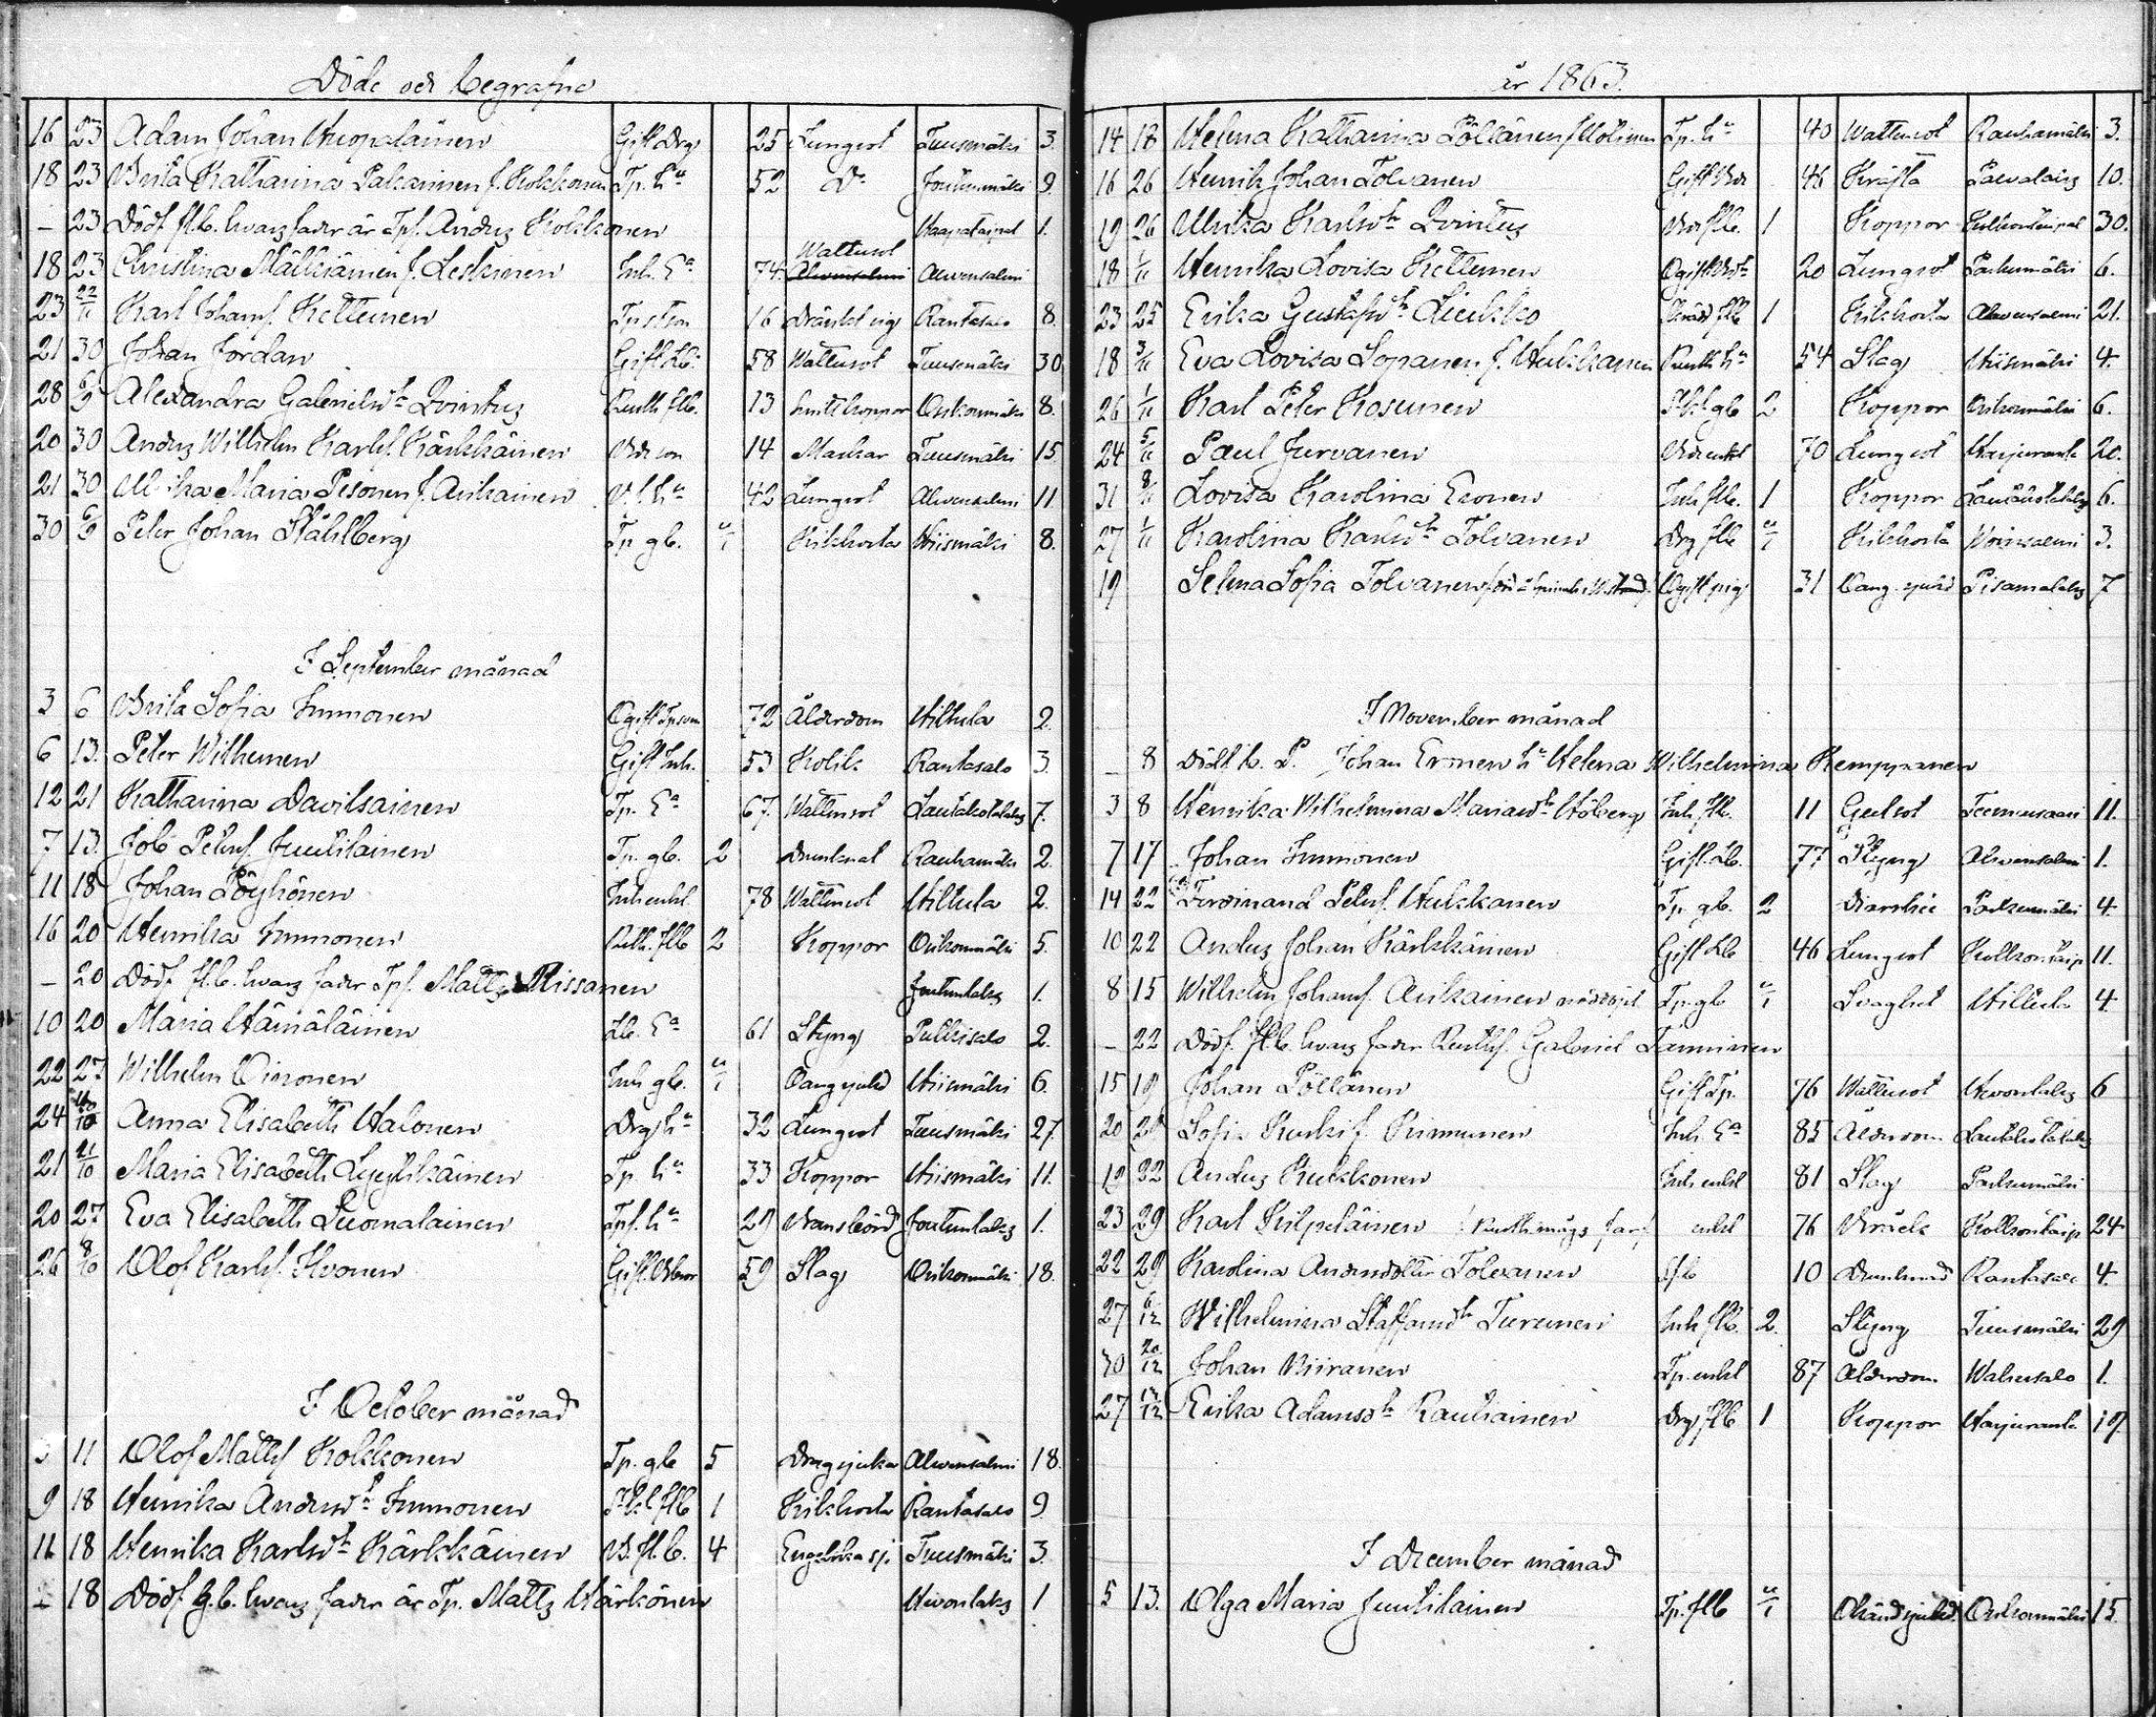 Döde och begrafne
16 23 Adam Johan Huopalainen Gift Drg 25 Lungsot Tuusmäki 3.
18 23 Brita Katharina Pakarinen f. Kokkonen Tp. hu 52 Do Joutenmäki 9
– 23 Dödf. fl.b. hvars fader är Tpf. Anders Kokkonen Haapataipal 1.
18 23 Christina Mälkiäinen f. Leskinen Inh. Ea 74. Wattusot Ahvensalmi
23 22/11 Karl Johansf. Kettunen Tp son 16 Dränkt sig Rantasalo 8.
21 30 Johan Jordan Gift Lb. 58 Wattusot Tuusmäki 30
28 6/9 Alexandra Gabrielsdtr Qvintus Ruth flb. 13 koppor Orikonmäki 8.
20 30 Anders Wilhelm Karlsf. Kärkkäinen Bde son 14 Maskar Tuusmäki 15.
21 30 Ulrika Maria Pesonen f. Asikainen hu 42 Lungsot Ahvensalmi 11.
30 6/9 Peter Johan Ståhlberg Tp gb. u/1 Kikhosta Hiismäki 8.
I September månad
3 6 Brita Sofia Immonen Ogift 72 Ålderdom Hiltula 2.
6 13. Peter Wilhunen Gift Inh. 53 Kolik Rantasalo 3.
12 21 Katharina Davilsainen Tp. Ea 67. Wattusot Lautakotalaks 7.
7 13. Job Petersf. Juutilainen Tp. gb. 2 Drunknat Rauhamäki 2.
11 18 Johan Pöyhönen Inh enkl. 78 Wattusot Hiltula 2.
16 20 Henrika Immonen Ruth. flb 2 Koppor Orikonmäki 5.
– 20 Dödf. fl.b. hvars fader Tpf. Matts Nissanen Joutenlaks 1.
10 20 Maria Hämäläinen Lb. Ea 61 Styng Pulkisalo 2.
22 27 Wilhelm Oinonen Inh gb. u/1 Oang sjukd Hiismäki 6.
24 Anna Elisabeth Halonen Drg hu 32 Lungsot Tuusmäki 27.
21 11/10 Maria Elisabeth Lyytikäinen Tp hu 33 Koppor Hiismäki 11.
20 27 Eva Elisabeth Suomalainen Tpf. hu 29 Barnsbörd Joutenlaks 1.
26 8/10 Olof Karlsf. Ikonen Gift 59 Slag Orikonmäki 18.
I October månad
11 Olof Mattsf Kokkonen Tp. gb 5 Dragsjuka Ahvensalmi 18.
9 18 Henrika Andersdtr Immonen flb 1 Kikhosta Rantasalo 9
11 18 Henrika Karlsdtr Kärkkäinen B. fl.b. 4 Engelska sj. Tuusmäki 3.
18 Dödf g.b. hvars fader är Tp. Matts Härkönen Hevonlaks 1
år 1863.
14 18 Helena Katharina Pöllänen f. Tp. hu 40 Wattusot Rauhamäki 3.
16 26 Henrik Johan Tolvanen Gift Bde 46 Kräfta 10.
19 26 Ulrika Karlsdtr Qvintus Bde flb. 1 Koppor Kolkontaipal 30.
18 1/11 Henrika Lovisa Kettunen Ogift 20 Lungsot Parkumäki 6.
23 25 Erika Gustafsdtr Liukko flb 1 Kikhosta Ahvensalmi 21.
18 3/11 Eva Lovisa Sopanen f. Hukkanen Ruth hu 54 Slag Hiismäki 4.
26 1/11 Karl Peter Kosunen gb 2 Koppor Orikonmäki 6.
24 5/11 Paul Jurvanen Bde enkl 70 Lungsot Harjuranta 20.
31 8/11 Lovisa Karolina Eronen Inh flb. 1 Koppor Lautakotalaks 6.
27 1/11 Karolina Karlsdtr Tolvanen Drg flb u/1 Kikhosta Woinsalmi 3.
19 Selma Sofia Tolvanen Ogift pig 31 Oang. sjukd Pisamalaks 7
I November månad
– 8 Dödf. Johan Eronen hu Helena Wilhelmina Kemppanen
3 8 Henrika Wilhelmina Mariasdtr Höberg Inh flb. 11 Gulsot Teemusaari 11.
7 17 Johan Immonen Gift. Lb. 77 Styng Ahvensalmi 1.
14 22 Ferdinand Petersf. Hukkanen Tp gb. 2 Diarrhée Parkumäki 4.
10 22 Anders Johan Kärkkäinen Gift Lb 46 Lungsot Kolkontaip 11.
8 15 Wilhelm Johansf. Asikainen nöddöpt. Tp. gb u/1 Svaghet Hiltula 4.
– 22 Dödf. fl.b. hvars fader Ruthf. Gabriel Tanninen
15 19 Johan Pöllänen Gift Tp. 76 Wattusot Hevonlaks 6
20 Sofia Kurki f. Kinnunen Inh. Ea 85 Ålderdom Lautakotalaks
22 Anders Kukkonen Inh enkl 81 Slag Parkumäki
23 29 Karl Silpeläinen enkl 76 Bråck Kolkontaip 24
22 29 Karolina Andersdotter Tolvanen flb 10 Drunknad Rantasalo 4.
27 6/12 Wilhelmina Staffansdtr Turunen Inh flb. 2. Styng Tuusmäki 29
30 20/12 Johan Biiranen Tp. enkl 87 Ålderdom Wahersalo 1.
27 13/12 Erika Adamsdtr Rautiainen Drg flb 1 Koppor Harjuranta 19.
I December månad
5 13. Olga Maria Juutilainen Tp. flb u/1 Okänd sjukd. Orikonmäki 15.